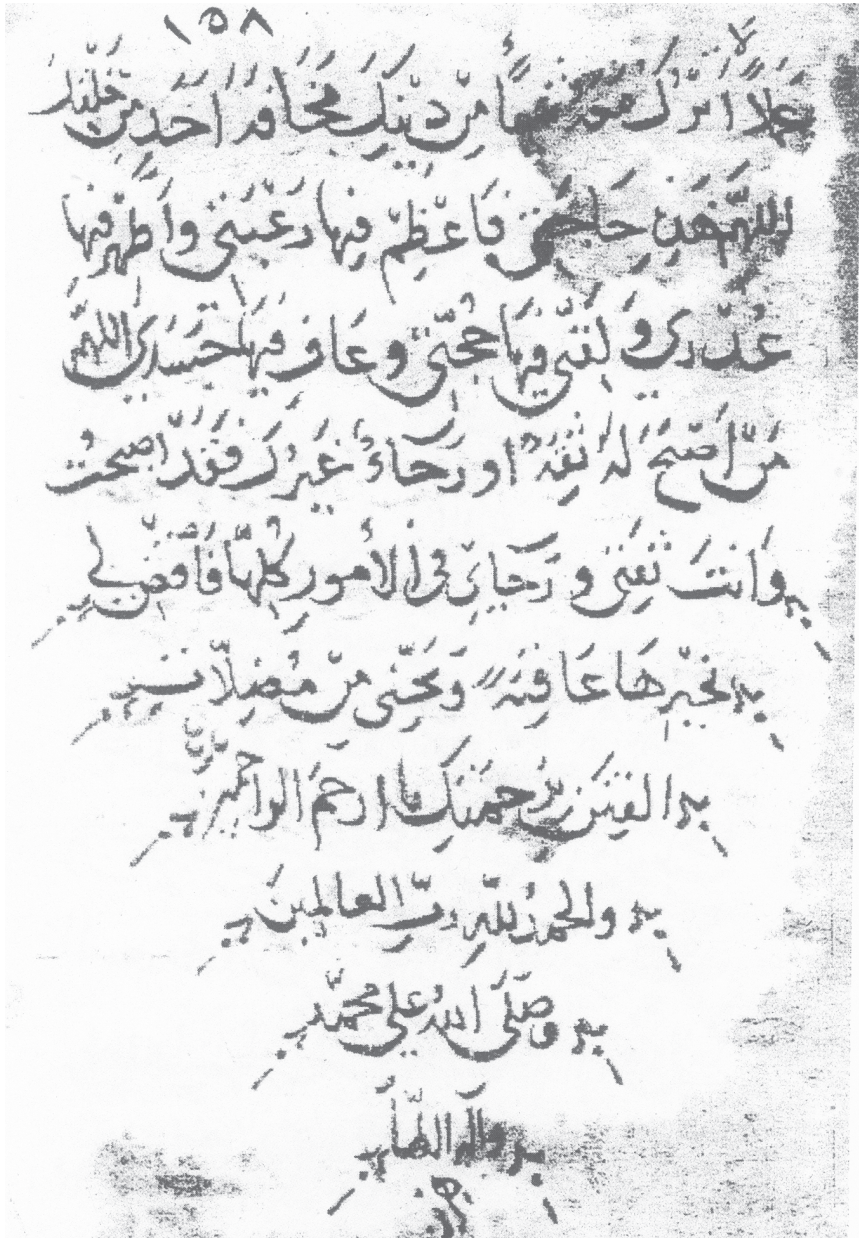 ١٥٨
عَمَلاً لا اَتْرُكُ مَعَهُ شَيْئاً مِنْ دِينِكَ مَخَافَةَ اَحَدٍ مِنْ خَلْقِكَ
اللهُمَّ هَذِهِ حَاجَتِى فَاَعْظِمْ فِيهَا رَغْبَتِى وَاَظْهِرْ فِيهَا
عُذْرِي وَ لَقِّنِّى فِيهَا حُجَّتِى وَعَافِ فِيهَا جَسَدِي اللهُمَّ
مَنْ اَصْبَحَ لَهُ ثِقَةٌ اَو رَجَاءٌ غَيْرُكَ فَقَدْ اَصْبَحْتُ
وَاَنْتَ ثِقَتِى وَ رَجَائِي فِى الْأُمُورِ كُلِّهَا فَاقْضِ لِي
بِخَيْرِهَا عَاقِبَةً وَ نَجِّنِى مِنْ مُضِلَّاتِ
الفِتَنِ بِرَحْمَتِكَ يَا اَرْحَمَ الرَاحِمِينَ
وَالحَمْدُ لِلّهِ رَبِّ العَالَمِينَ
وَصَلَّى اللهُ عَلَى مُحَمَّد
وَآلِهِ